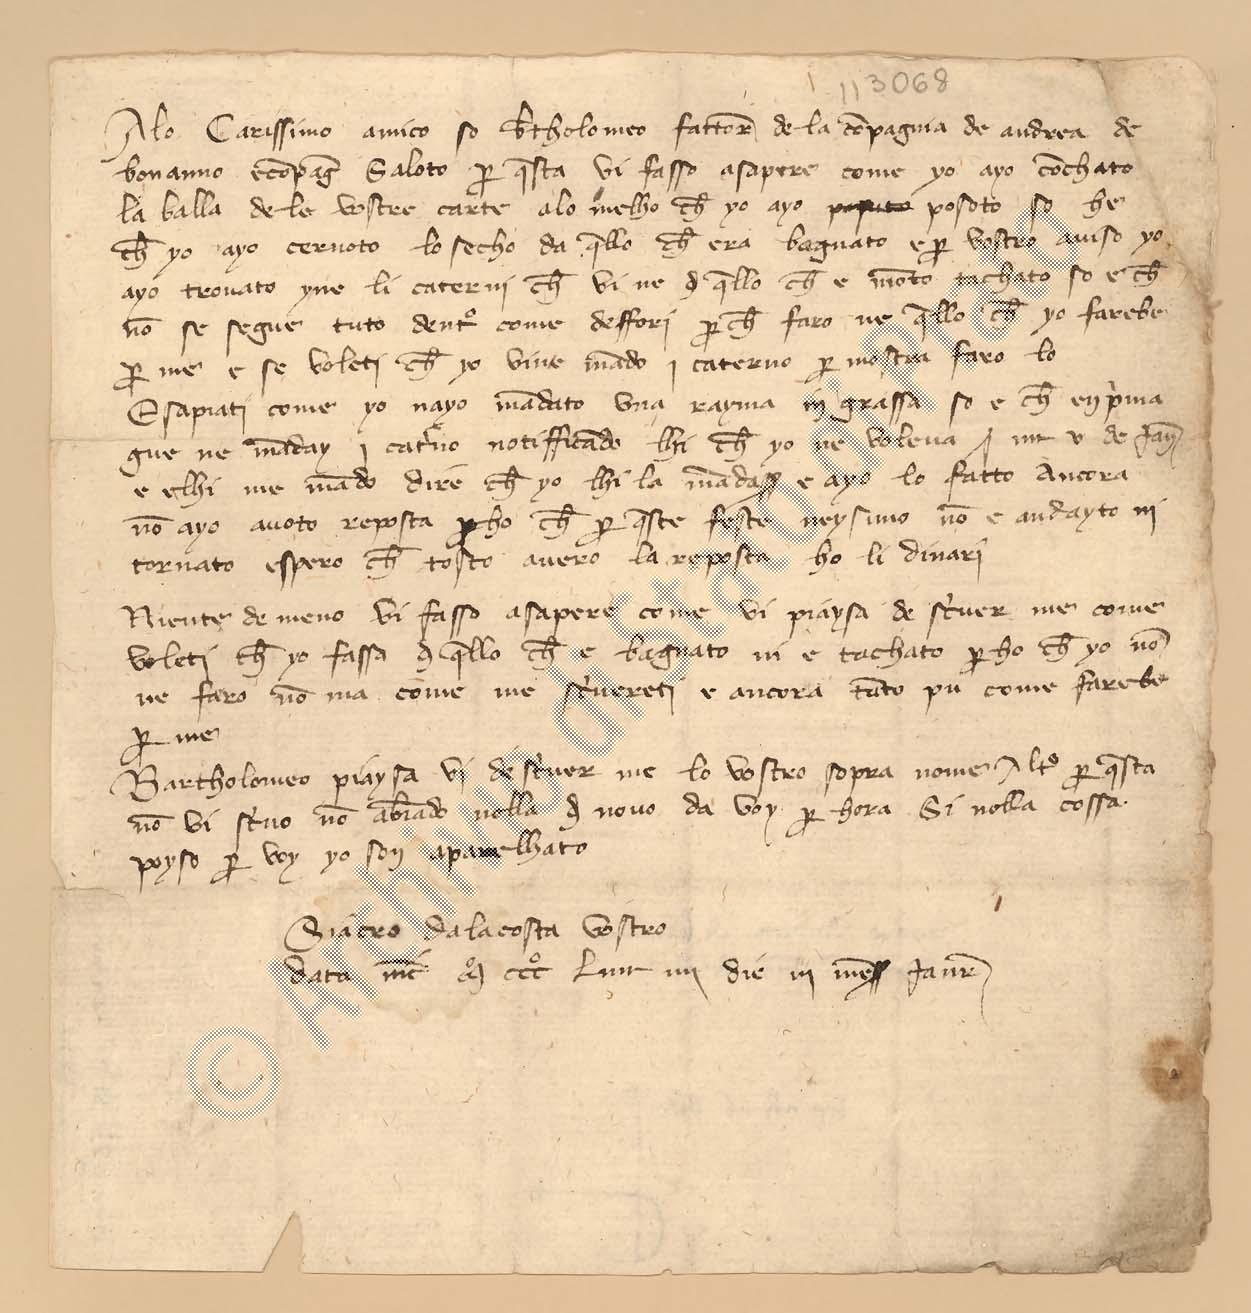 113068
Alo Carissimo amico so Btholomeo fattor de la cōpagnia de andrea de
bonanno ecōpag Saloto p q̄sta vi fasso asapere come yo ayo cōchato
la balla de le vostre carte alo melho ch̄ yo ayo posoto so he
ch̄ yo ayo cernoto lo secho da q̄llo ch̄ era bagnato e p vostro auiso yo
ayo trouato yne li caterni ch̄ vi ne d q̄llo ch̄ e mōto tachato so e ch̄
nō se segue tuto dentᵒ come deffori p ch̄ faro ne q̄llo ch̄ yo farebe
p me e se voleti ch̄ yo vine mādo j caterno p mostra faro lo
Esapiati come yo nayo mādato vna rayma in grassa so e ch̄ en p̄ma
gue ne māday j cat̄no notifficādo lhi ch̄ yo ne voleua de Jan
e elhi me mādo dire ch̄ yo lhi la mādass e ayo lo fatto Ancora
nō ayo auoto reposta p ho ch̄ p q̄ste feste neysuno nō e andayto ni
tornato espero ch̄ tosto auero la reposta ho li dinari
Niente de meno vi fasso asapere come vi piaysa de sc̄uer me come
voleti ch̄ yo fassa d q̄llo ch̄ e bagnato ni e tachato p ho ch̄ yo nō
ne faro nō ma come me sc̄uereti e ancora tāto pu come farebe
p me
Bartholomeo piaysa vi de sc̄uer me lo vostro sopra nome Altᵒ p q̄sta
nō vi sc̄uo nō abiādo nolla d nouo da voy p hora Si nolla cossa
poyso p voy yo son aparelhato
Siacro dalacosta vostro
data M CCC Lxxx iiij die iij mēss Januar
© Archivio di Stato di Prato